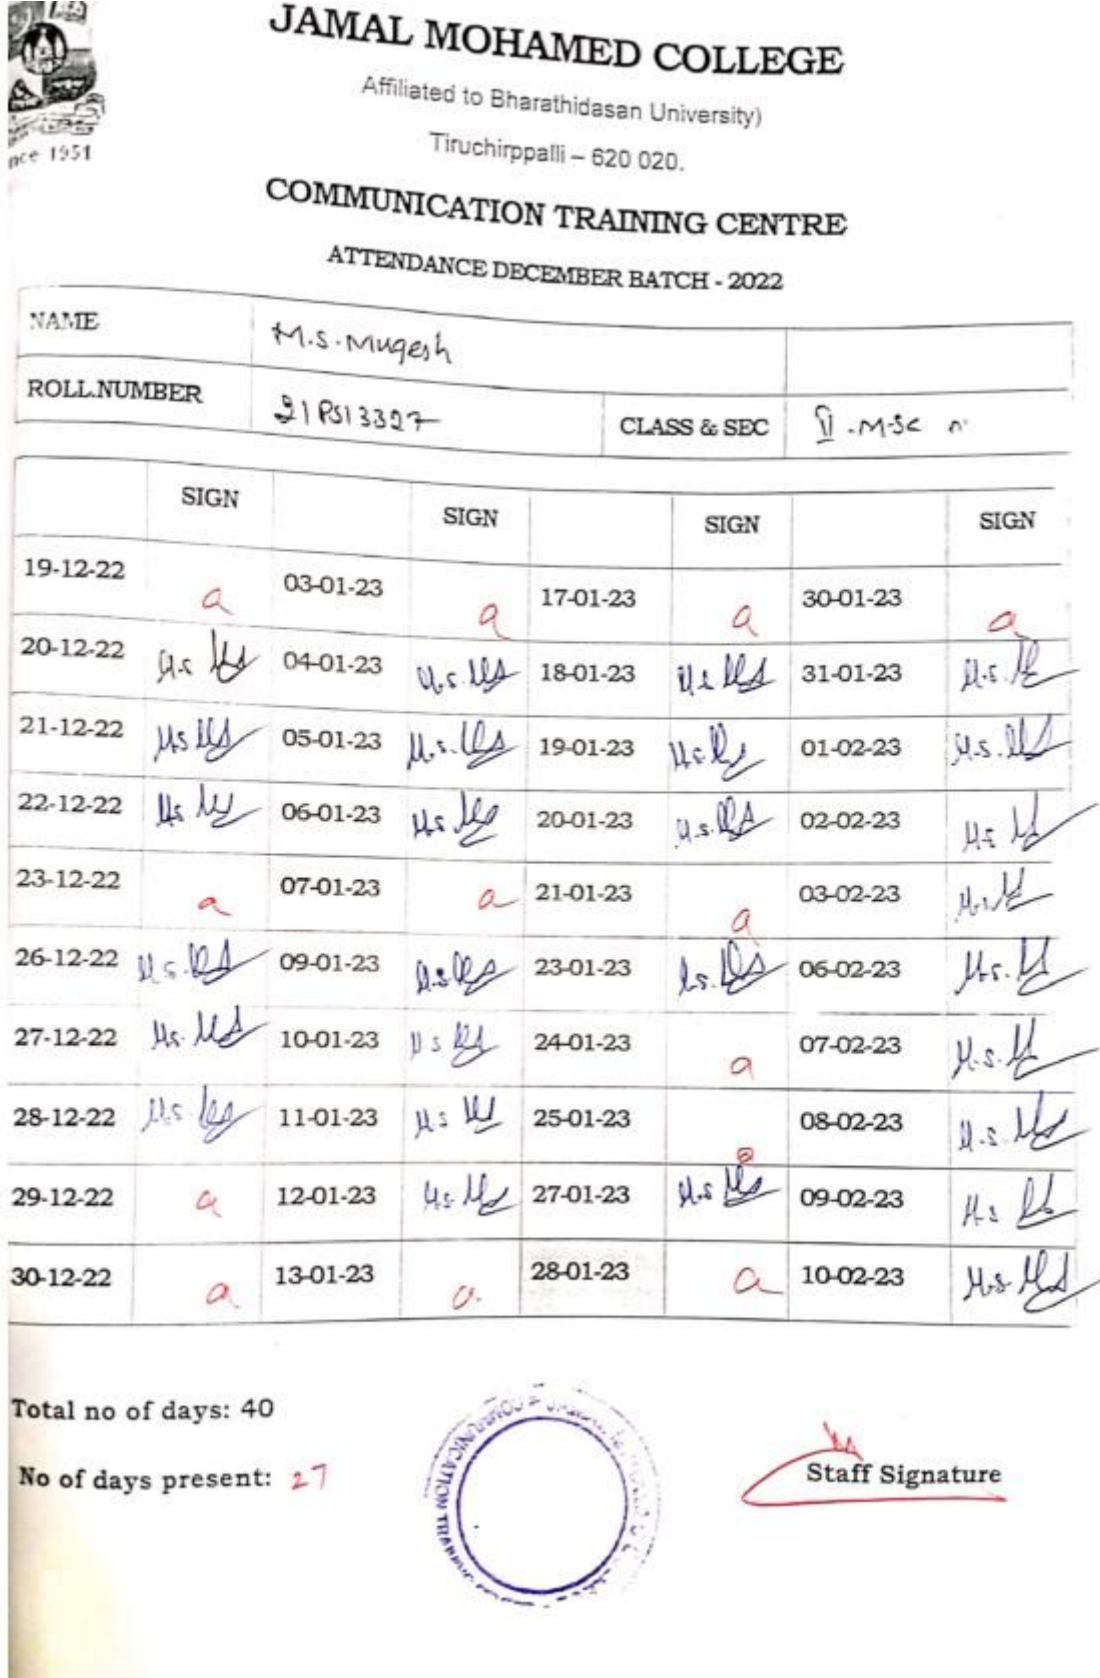 JAMAL MOHAMED COLLEGE
Affiliated to Bharathidasan University)
Tiruchirppalli – 620 020.
nce 1951
COMMUNICATION TRAINING CENTRE
ATTENDANCE DECEMBER BATCH - 2022
NAME M.S.Mugesh
ROLL.NUMBER 21PS13327 CLASS & SEC II -M-Sc
SIGN SIGN SIGN SIGN
19-12-22 a 03-01-23 a 17-01-23 a 30-01-23 a
20-12-22 M.S 04-01-23 M.S. 18-01-23 M.S 31-01-23 M.S.
21-12-22 M.S 05-01-23 M.S. 19-01-23 M.S. 01-02-23 M.S.
22-12-22 M.S 06-01-23 M.S 20-01-23 M.S. 02-02-23 M.S
23-12-22 a 07-01-23 a 21-01-23 a 03-02-23 M.S
26-12-22 M.S. 09-01-23 M.S 23-01-23 M.S. 06-02-23 M.S.
27-12-22 M.S. 10-01-23 M S 24-01-23 a 07-02-23 M.S.
28-12-22 M.S. 11-01-23 M S 25-01-23 a 08-02-23 M.S.
29-12-22 a 12-01-23 M.S 27-01-23 M.S 09-02-23 M.S
30-12-22 a 13-01-23 a 28-01-23 a 10-02-23 M.S
Total no of days: 40
No of days present: 27
Staff Signature